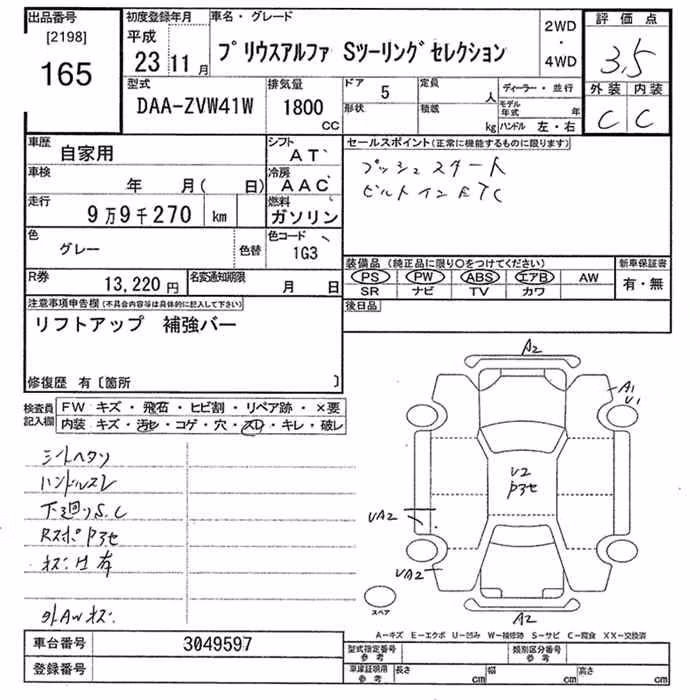 出品番号 初度登録年月 車名・グレード 2WD・4WD 評価点
[2198] 165 平成 23年 11月 プリウスアルファ Sツーリングセレクション 3,5
型式 排気量 ドア 5 定員 人 ディーラー・並行 外装 内装
DAA-ZVW41W 1800 CC 形状 積載 kg モデル年式 年 ハンドル 左・右 C C
車歴 自家用 シフト AT セールスポイント(正常に機能するものに限ります)
車検 年 月( 日) 冷房 AAC プッシュスタート
走行 9万9千270 km 燃料 ガソリン ビルトインETC
色 グレー 色替 色コード 1G3
装備品(純正品に限り○をつけてください) 新車保証書
PS PW ABS エアB AW 有・無
SR ナビ TV カワ
R券 13,220円 名変通知期限 月 日
後日品
注意事項申告欄(不具合内容等は具体的に記入して下さい)
リフトアップ 補強バー
修復歴 有〔箇所 〕
検査員記入欄 FW キズ・飛石・ヒビ割・リペア跡・×要
内装 キズ・汚レ・コゲ・穴・スレ・キレ・破レ
シートヘタリ
ハンドルスレ
下廻りS.C
Rスポロアセ
外AWキズ
A2
A1
U1
U2
UA2
UA2
A2
スペア
A-キズ E-エクボ U-凹み W-補修跡 S-サビ C-腐食 XX-交換済
車台番号 3049597
登録番号
型式指定番号 参考 類別区分番号 参考
車庫証明用 参考 長さ cm 幅 cm 高さ cm